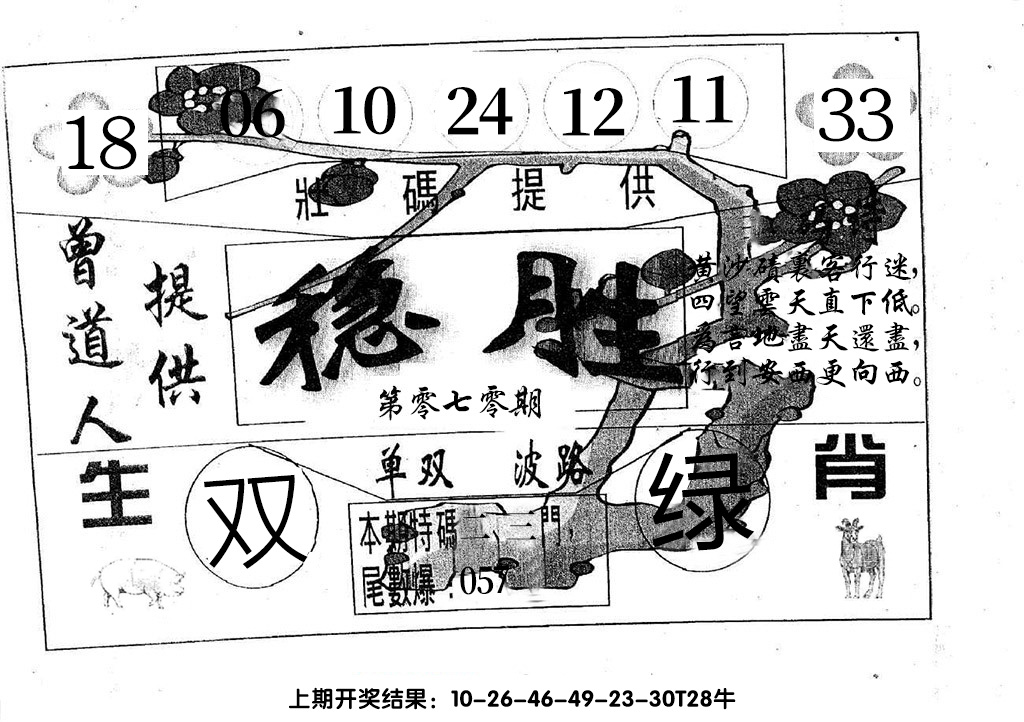 18 06 10 24 12 11 33
壯碼提供
特
曾道人
提供
稳胜
第零七零期
黄沙磧裏客行迷，
四望雲天直下低。
為言地盡天還盡，
行到安西更向西。
生肖
双
单双 波路
绿
本期特碼二、三門，
尾數爆：057
上期开奖结果：10-26-46-49-23-30T28牛